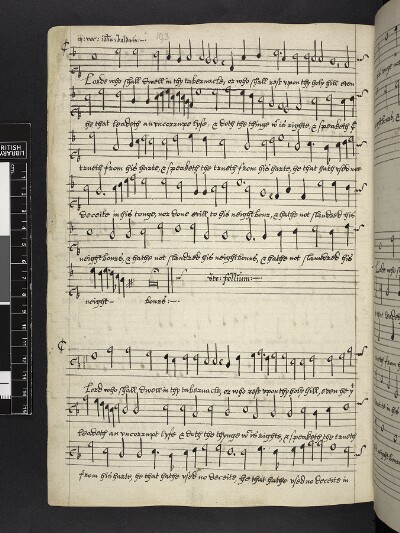 iij: voc: 193
Lorde who shall dwell in thy tabernacle, or who shall rest upon thy holy hill even
he that leadeth an uncorrupt lyfe, & doth the thynge is righte, & speaketh
trueth from his harte, & speaketh the trueth from his harte, he that hath used noe
deceite in his tonge, nor done evill to his neighbour, & hathe not slaundred his
neighbours, & hathe not slaundred his neighbours, & hathe not slaundred his
neigh- bours:
Lord who shall dwell in thy tabernacle, or who rest upon thy holy hill, even he
leadeth an uncorrupt lyfe & doth the thynge is righte, & speaketh the trueth
from his harte, he that hathe used no deceite, he that hathe used no deceite in
BRITISH
LIBRARY